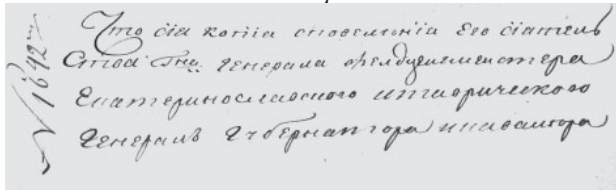 Что сiя копiя сповелѣнiя Его сiятель
Ства Гнн. Генерала Фелдцеихмейстера
Екатеринославского итаврического
Генералъ Губернатора икавалера
№ 1642